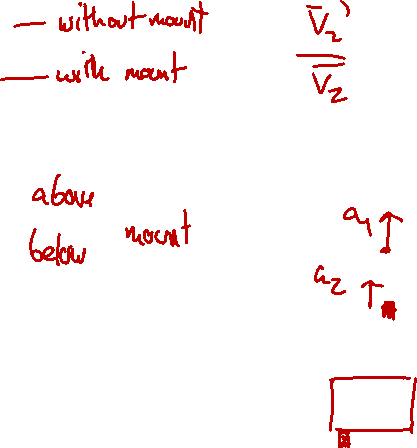 — without mount
— with mount
V̅₂'
V̅₂
above
below mount
a₁
a₂